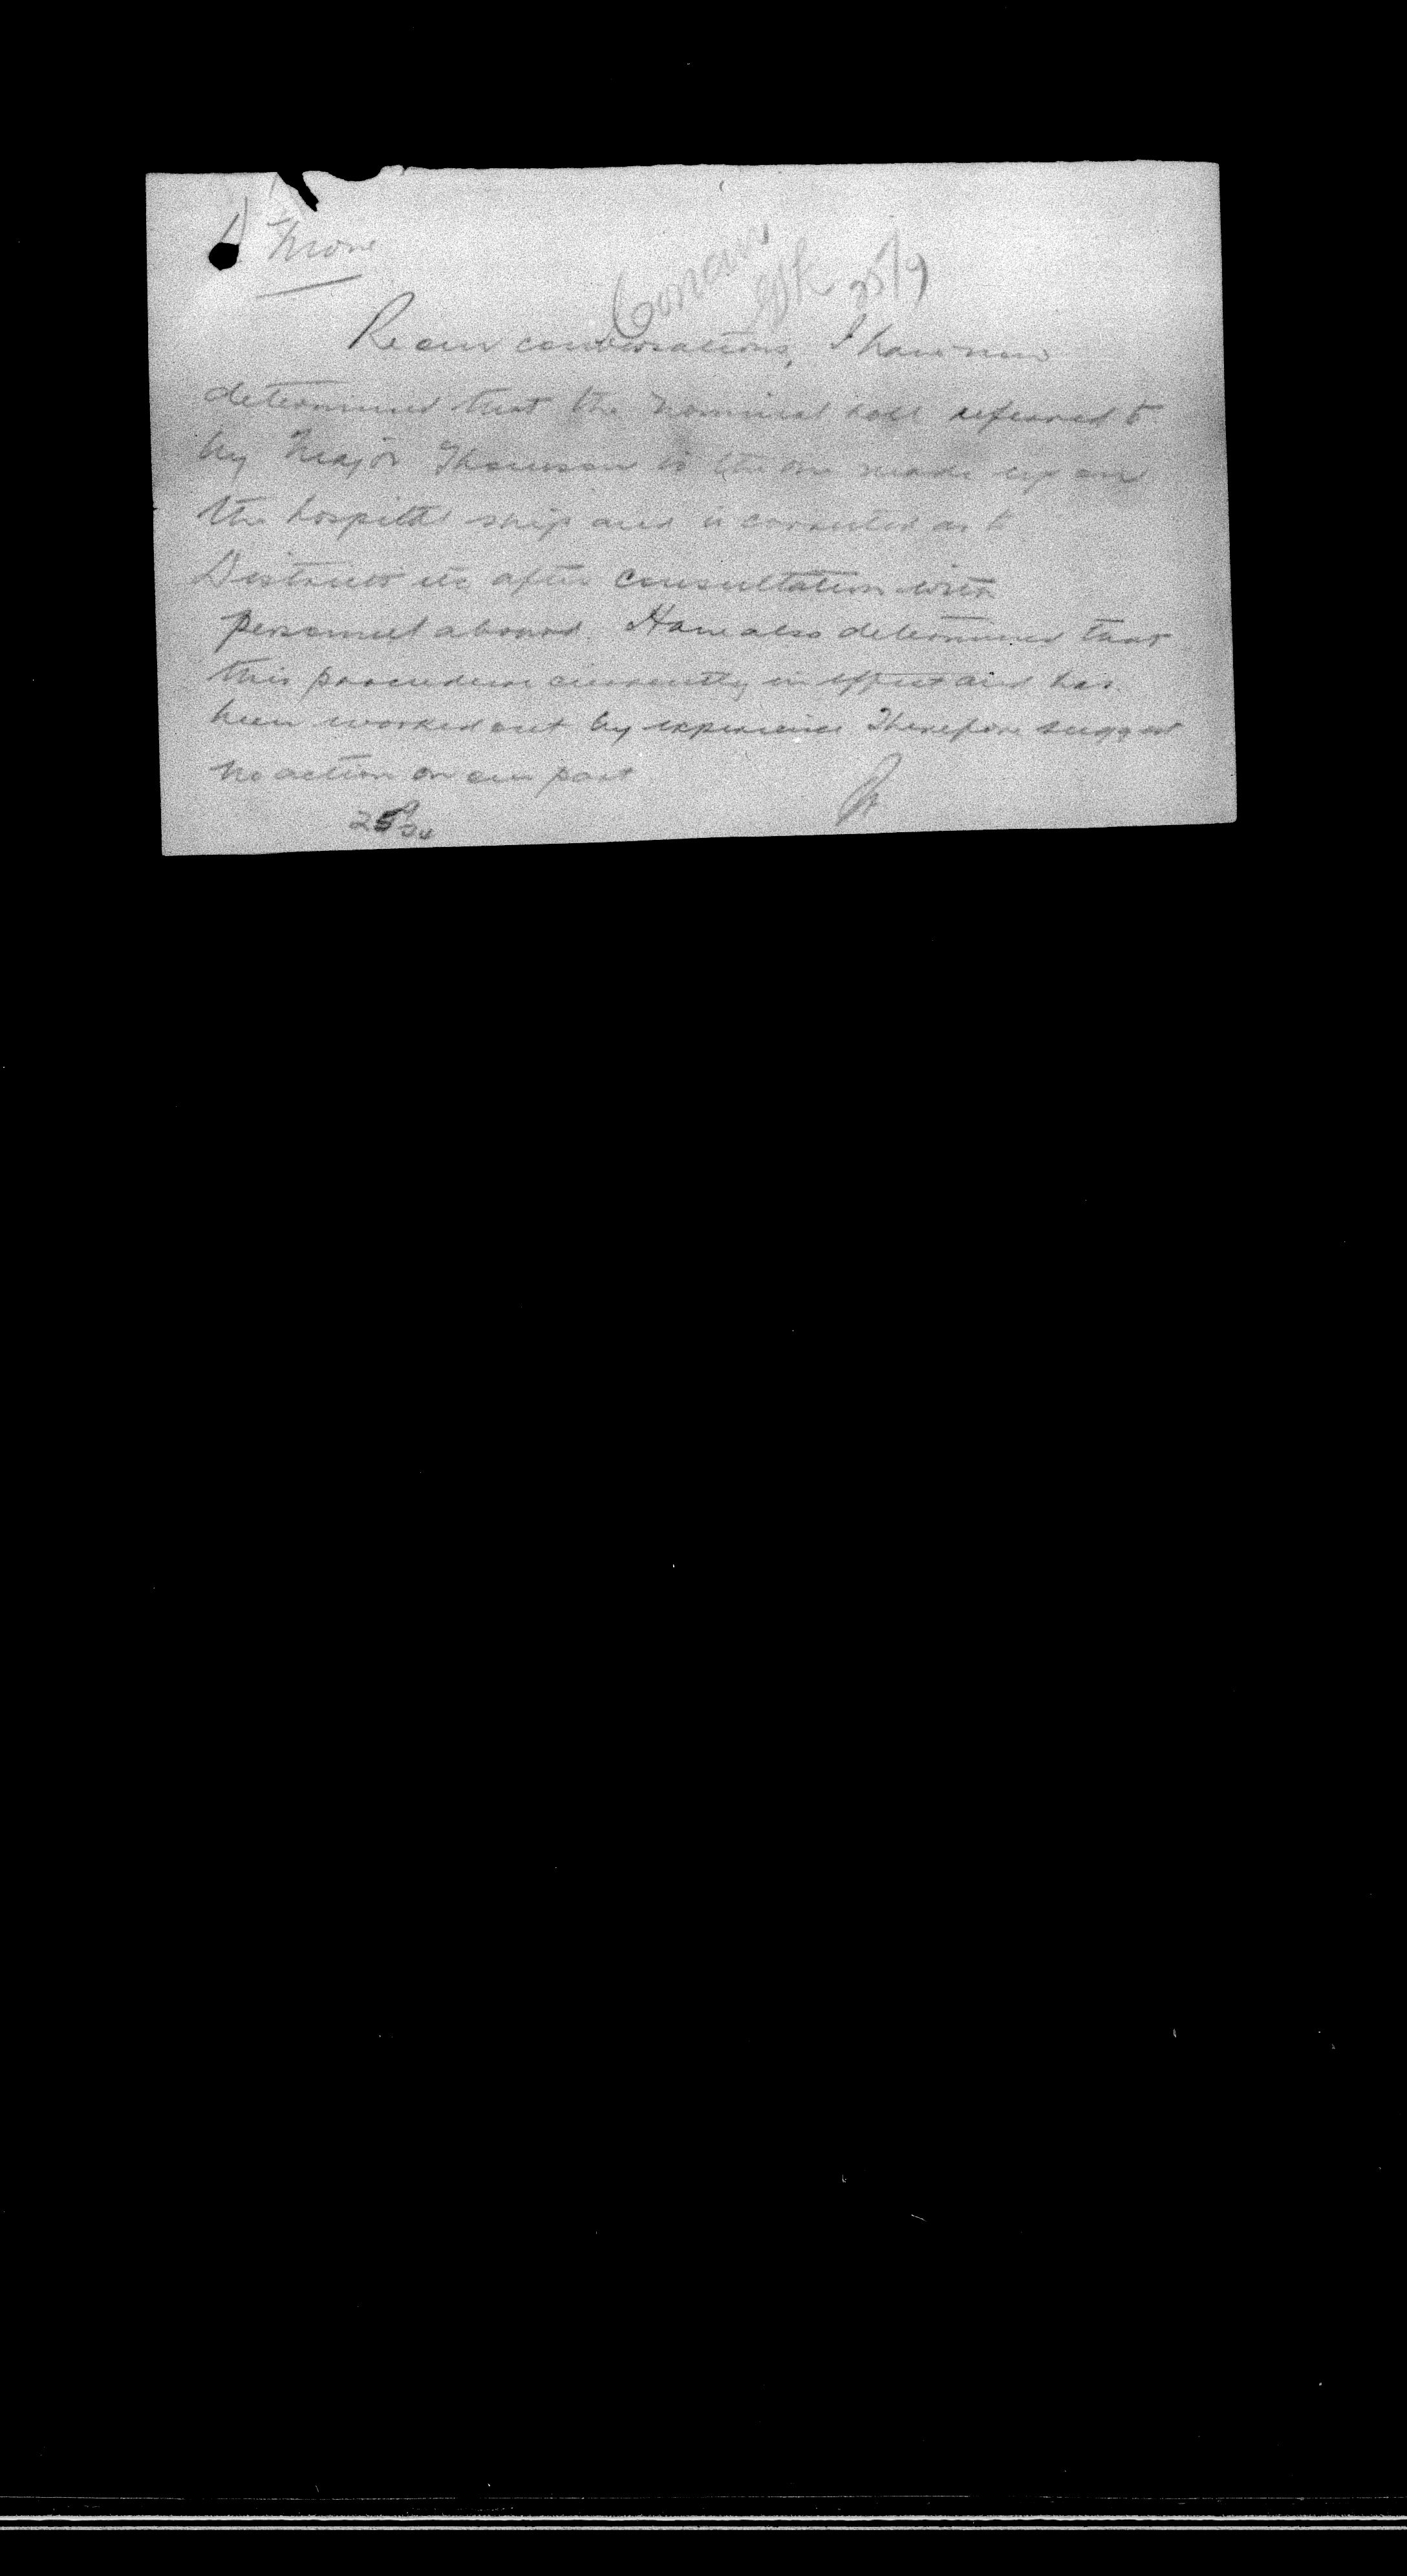 D. Mov
Concur
25/9
Re our conversations, I have now
determined that the nominal roll referred to
by Major Thomson is the one made up on
the hospital ship and is corrected as to
Districts etc after consultation with
personnel aboard. Have also determined that
this procedure currently in effect and has
been worked out by experience Therefore suggest
no action on our part
25/9